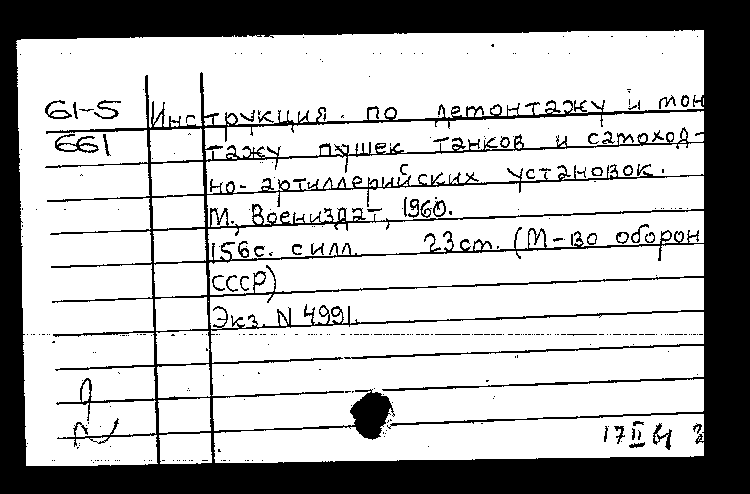 61-5 Инструкция по демонтажу и мон
661 тажу пушек танков и самоход-
но-артиллерийских установок.
М., Воениздат, 1960.
156с. с илл. 23см. (М-во оборон
СССР)
Экз. N 4991.
17 II 61